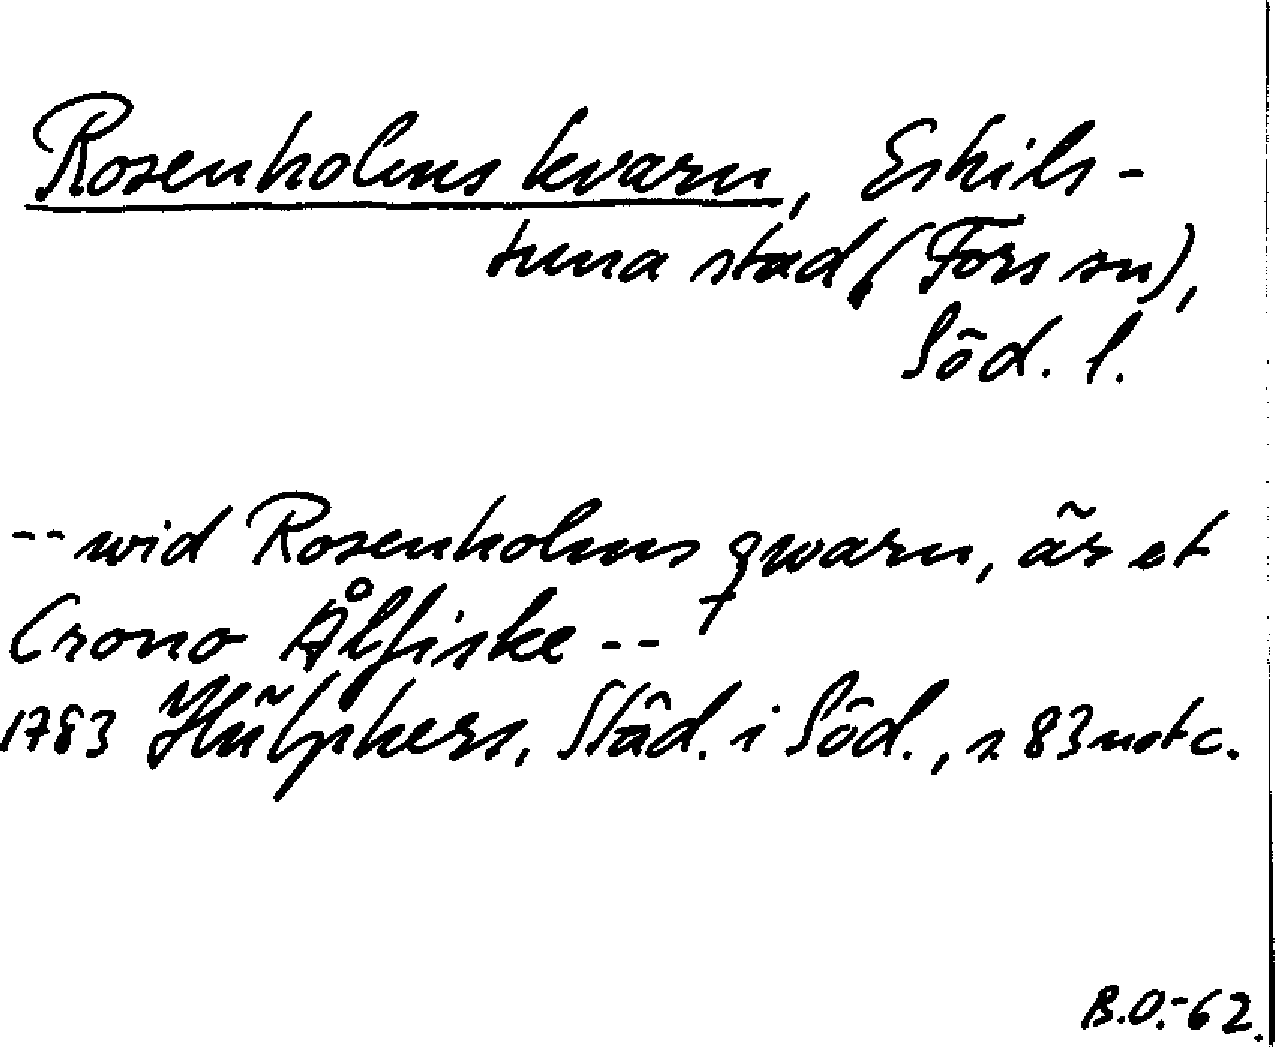 Rosenholms kvarn, Eskils-
tuna stad (Fors sn),
Söd. l.
-- wid Rosenholms qwarn, är et
Crono Ålfiske --
1783 Hülphers, Städ. i Söd., s 83 not c.
B.O.-62.